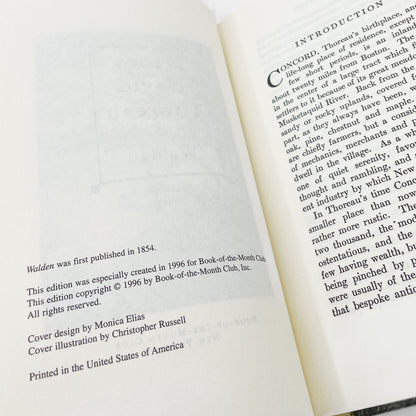 Walden was first published in 1854.
This edition was especially created in 1996 for Book-of-the-Month Club.
This edition copyright © 1996 by Book-of-the-Month Club, Inc.
All rights reserved.
Cover design by Monica Elias
Cover illustration by Christopher Russell
Printed in the United States of America
INTRODUCTION
CONCORD, Thoreau's birthplace, and
life-long place of residence, except
few short periods, is an inland
about twenty miles from Boston. The
in the center of a large tract which
settlers to it because of its great meadow
Musketaquid River. Back from the
sandy or rocky uplands, covered
part, as they always have been, w
oak, pine, chestnut and maple
are chiefly farmers, but a consid
of mechanics, merchants and p
dwell in the village. As a wh
one of quiet serenity, favo
thought and rambling, and
ent industry by which New
In Thoreau's time Conc
smaller place than now
rather more rustic. The
two thousand, the mod
ostentatious, and the
few having wealth,
being pinched by
were usually of the
that bespoke antic